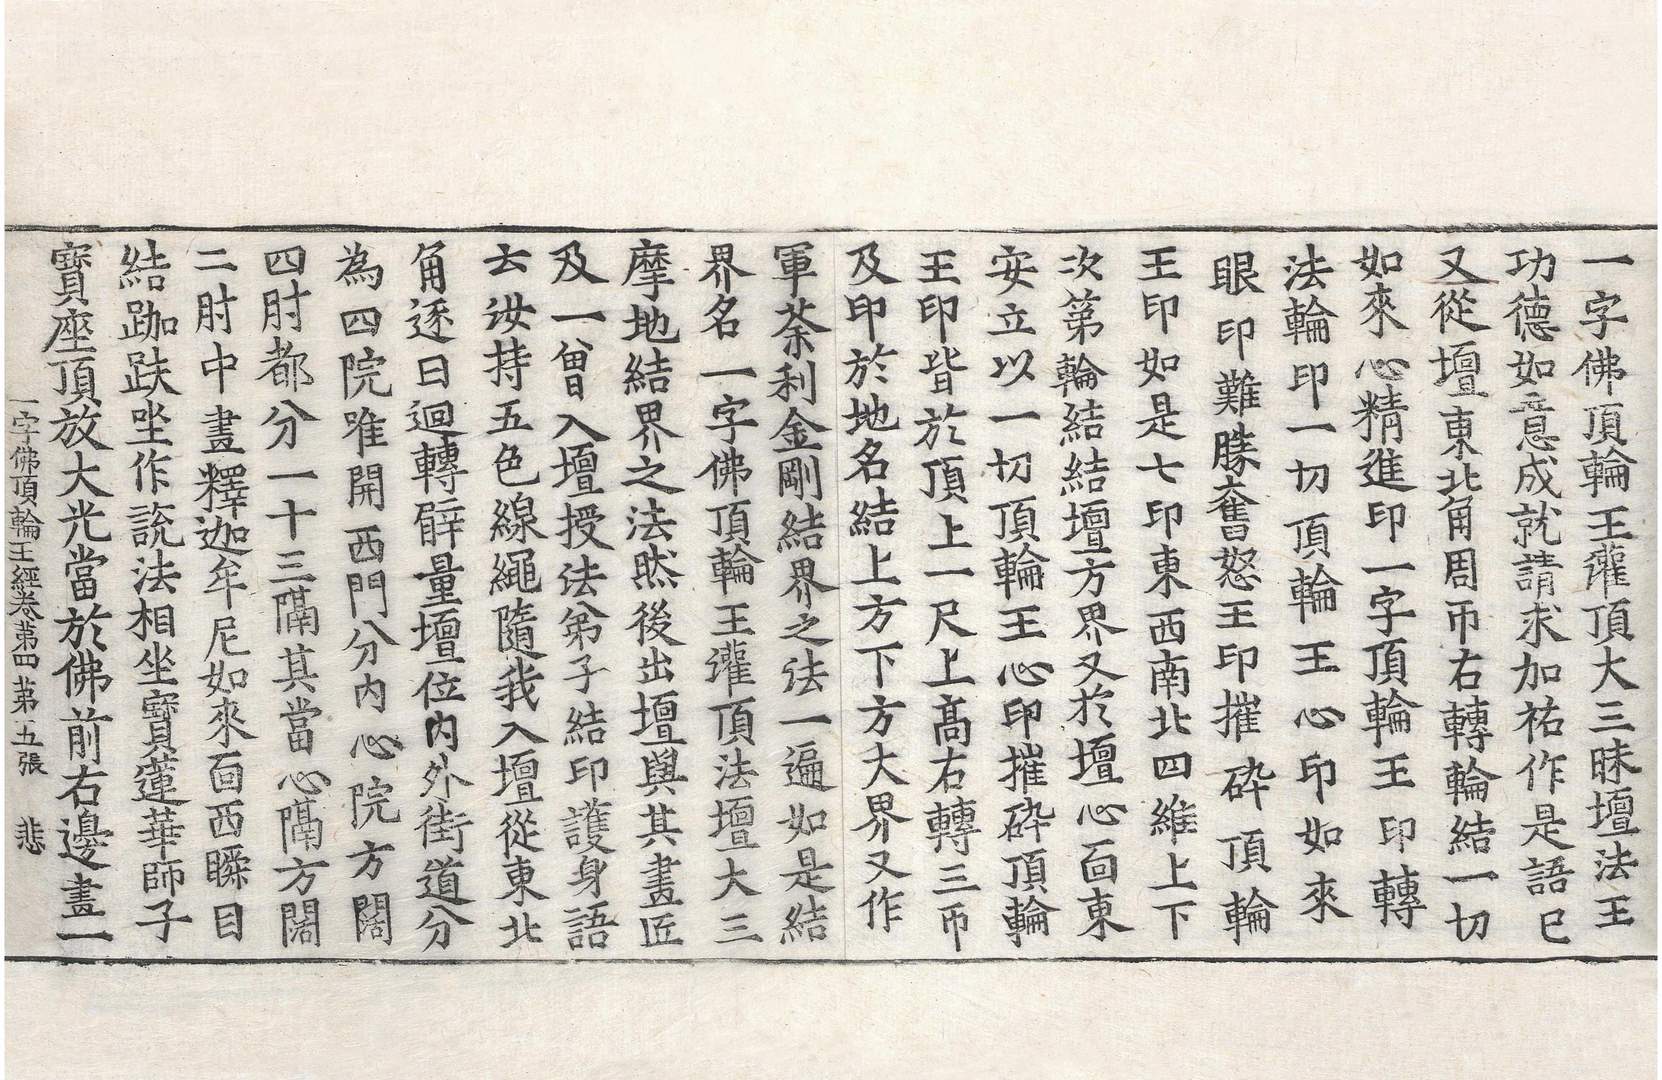 一字佛頂輪王灌頂大三昧壇法王
功德如意成就請求加祐作是語已
又從壇東北角周帀右轉輪結一切
如來心精進印一字頂輪王印轉
法輪印一切頂輪王心印如來
眼印難勝奮怒王印摧碎頂輪
王印如是七印東西南北四維上下
次第輪結結壇方界又於壇心面東
安立以一切頂輪王心印摧碎頂輪
王印皆於頂上一尺上高右轉三帀
及印於地名結上方下方大界又作
軍荼利金剛結界之法一遍如是結
界名一字佛頂輪王灌頂法壇大三
摩地結界之法然後出壇與其畫匠
及一曾入壇授法弟子結印護身語
去汝持五色線繩隨我入壇從東北
角逐日迴轉擗量壇位內外街道分
為四院唯開西門分內心院方闊
四肘都分一十三隔其當心隔方闊
二肘中畫釋迦牟尼如來面西瞬目
結跏趺坐作說法相坐寶蓮華師子
寶座頂放大光當於佛前右邊畫一
一字佛頂輪王經卷第四 第五張 悲